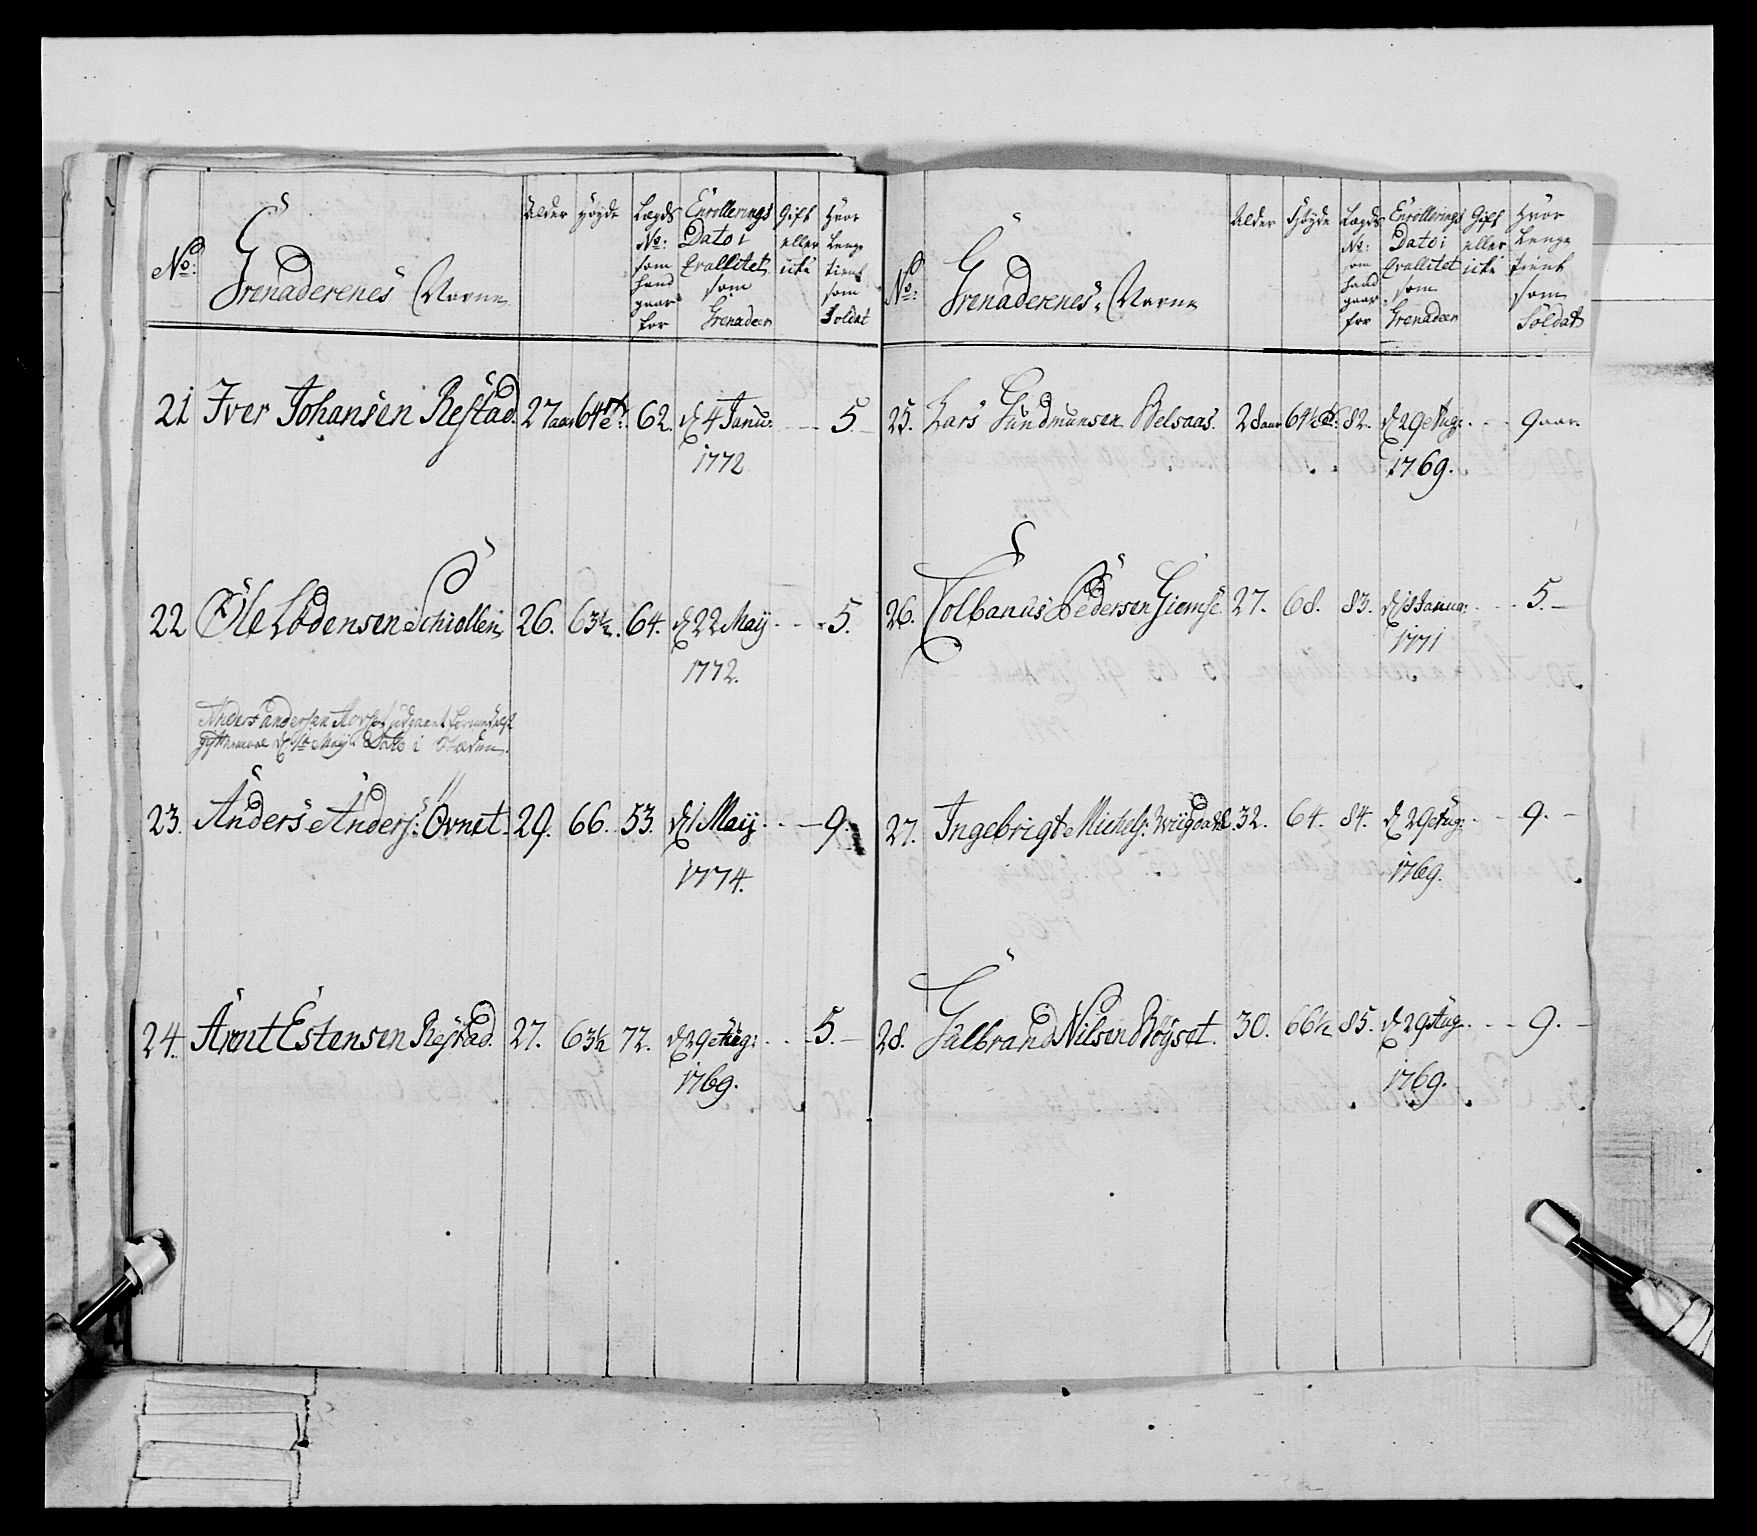 No:
Grenaderenes Navne
Alder
Høyde
Lægds
No:
som
hand
gaar
for
Enrollerings
Dato i
Qvallitet
som
Grenadeer
Gift
eller
icke
Hvor
Lenge
tient
som
Soldat
21 Iver Johansen Restad. 27 aar 64 62. d 4 Janu: - - 5.
1772
22 Ole Lodensen Schiollen 26. 63½. 64. d 22 Maij - - - 5.
1772.
Anders Andersen udgaaet formedelst
d Maij Dato i Stæden.
23. Anders Anders: Ovnet 29. 66. 53. d 1 Maij. - - 9.
1774.
24. Arent Estensen Restad. 27. 63½ 72. d 29 Aug: - - - 5. -
1769.
No:
Grenaderenes Navne
Alder
Høyde
Lægds
No:
som
hand
gaar
for
Enrollerings
Dato i
Qvallitet
som
Grenadeer
Gift
eller
icke
Hvor
Lenge
tient
som
Soldat
25. Lars Gundmunsen Belsaas. 28 aar 64½ 82. d 29 Aug: - - - 9 aar.
1769.
26. Tolbanus Pedersen Giemse 27. 68. 83. d 18 Janua: - - - 5. -
1771
27. Ingebrigt Michels: Wiigdahl 32. 64. 84. d 29 Aug: - - 9. -
1769.
28. Gulbrand Nilsen Bøyset. 30. 66½ 85. d 29 Aug: - - - 9. -
1769.